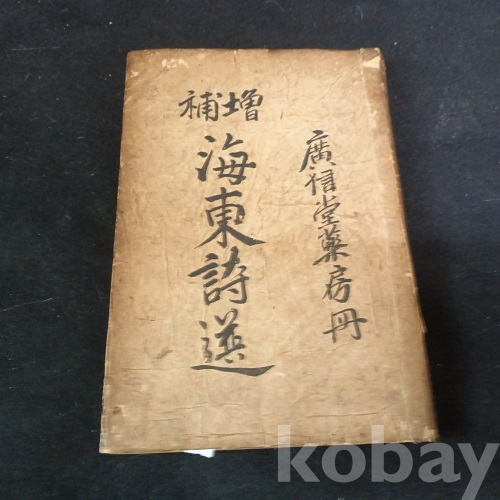 增補
海東詩選
廣信堂藥房冊
kobay